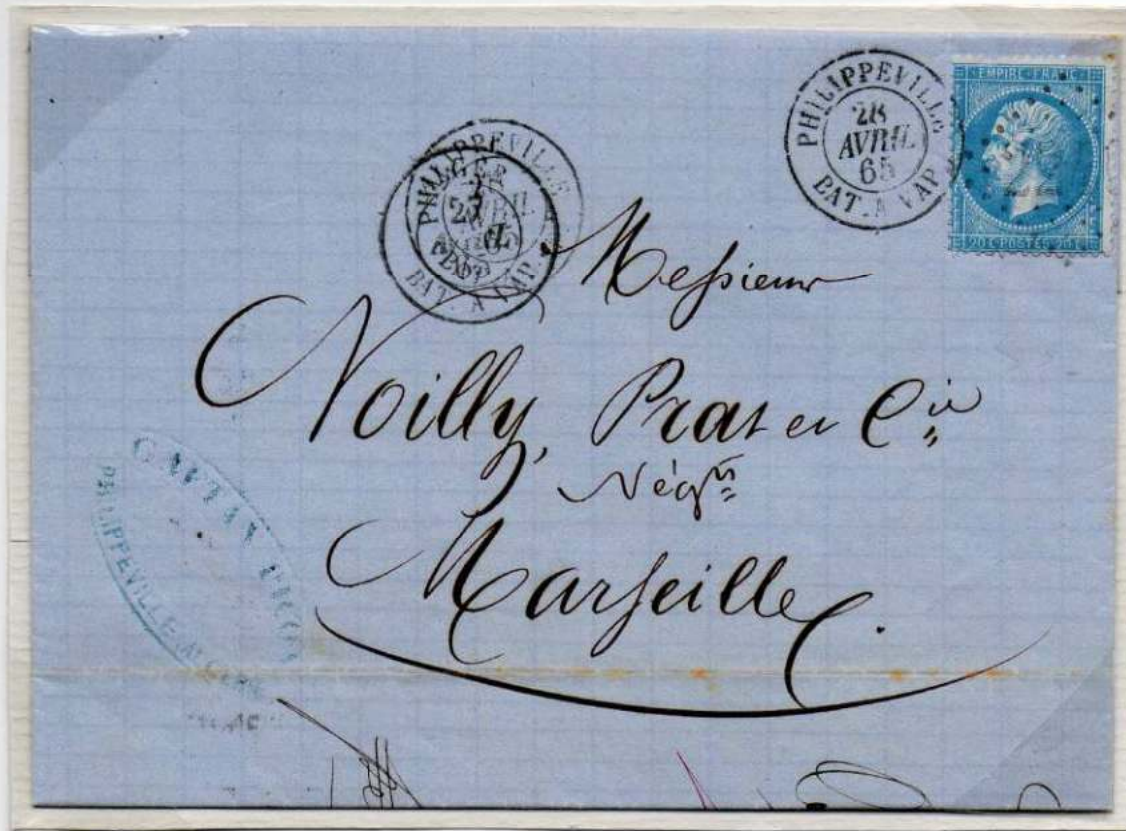 PHILIPPEVILLE
28
AVRIL
65
BAT. A VAP.
EMPIRE FRANC
20 C POSTES 20 C
PHILIPPEVILLE
BAT. A VAP.
ALGER
Messieurs
Noilly, Prat et Cie
Négts
Marseille
PHILIPPEVILLE